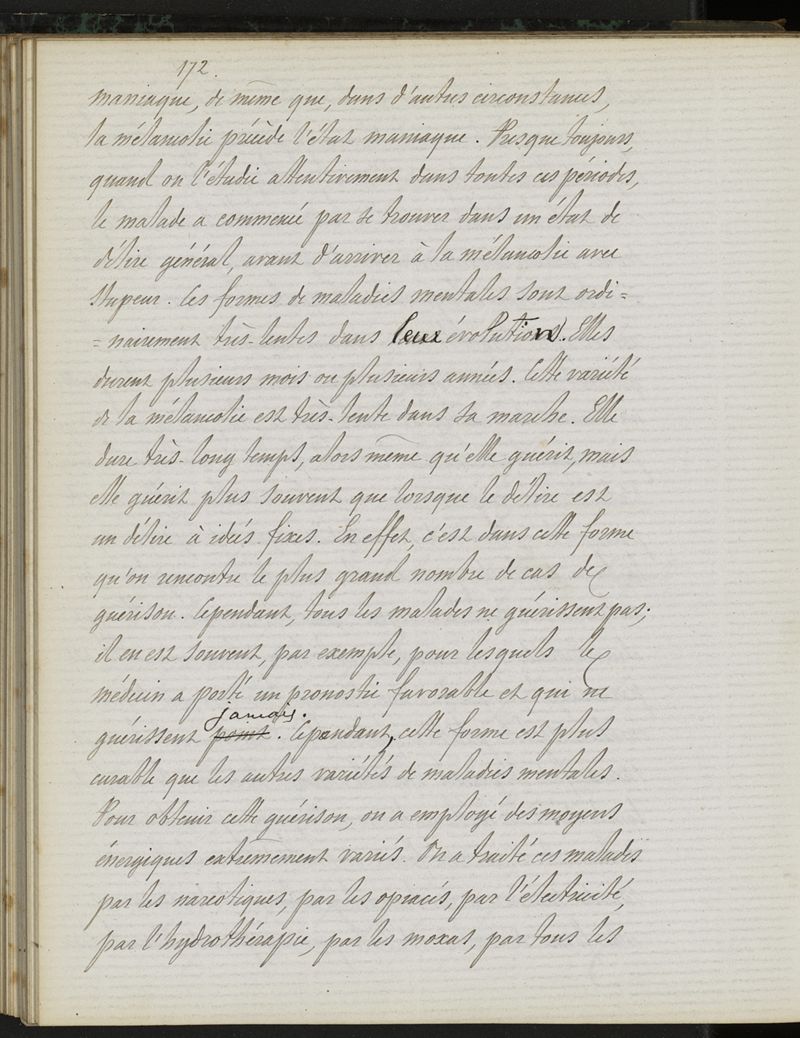 172.
maniaque, de même que, dans d'autres circonstances,
la mélancolie précède l'état maniaque. Presque toujours,
quand on l'étudie attentivement dans toutes ces périodes,
le malade a commencé par se trouver dans un état de
délire général, avant d'arriver à la mélancolie avec
stupeur. Ces formes de maladies mentales sont ordi=
=nairement très-lentes dans leur évolution. Elles
durent plusieurs mois ou plusieurs années. Cette variété
de la mélancolie est très-lente dans sa marche. Elle
dure très-long temps, alors même qu'elle guérit, mais
elle guérit plus souvent que lorsque le délire est
un délire à idées fixes. En effet, c'est dans cette forme
qu'on rencontre le plus grand nombre de cas de
guérison. Cependant, tous les malades ne guérissent pas;
il en est souvent, par exemple, pour lesquels le
médecin a porté un pronostic favorable et qui ne
jamais.
guérissent point. Cependant, cette forme est plus
curable que les autres variétés de maladies mentales.
Pour obtenir cette guérison, on a employé des moyens
énergiques extrêmement variés. On a traité ces malades
par les narcotiques, par les opiacés, par l'électricité,
par l'hydrothérapie, par les moxas, par tous les